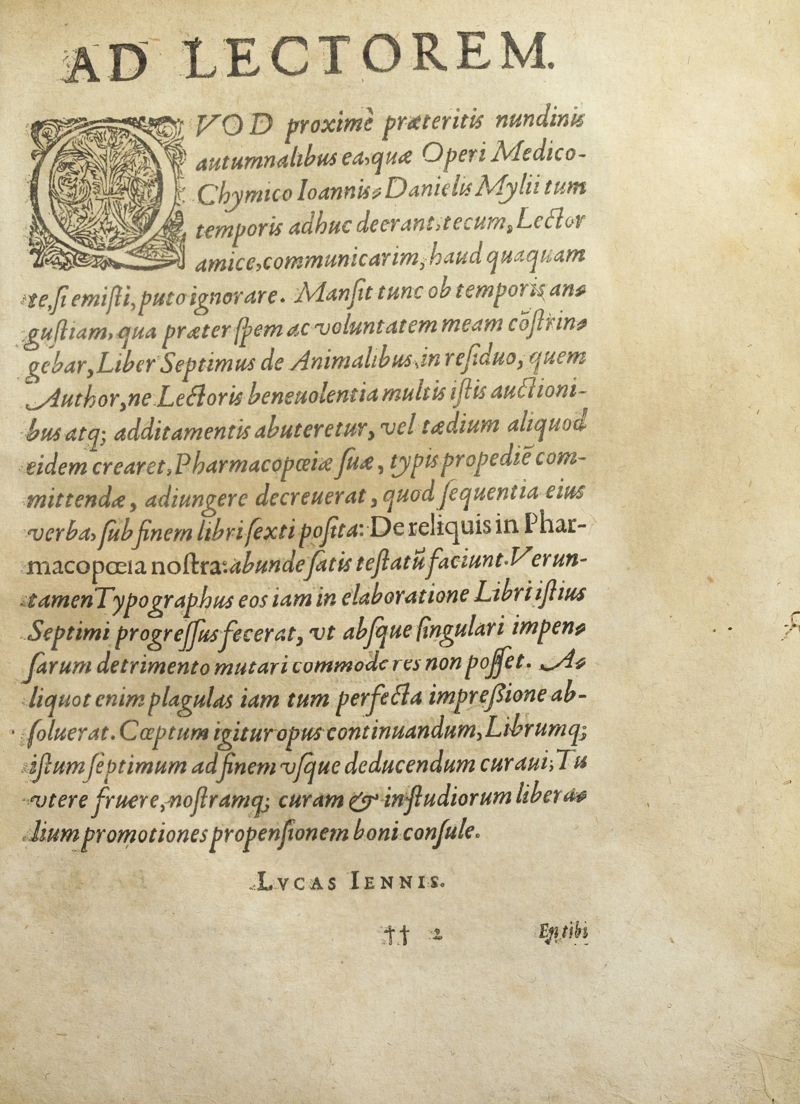 AD LECTOREM.
QVOD proximè præteritis nundinis
autumnalibus ea, quæ Operi Medico-
Chymico Ioannis, Danielis Mylii tum
temporis adhuc deerant, tecum, Lector
amice, communicarim, haud quaquam
te, si emisti, puto ignorare. Mansit tunc ob temporis an-
gustiam, qua præter spem ac voluntatem meam cōstrin-
gebar, Liber Septimus de Animalibus, in residuo, quem
Author, ne Lectoris beneuolentia multis istis auctioni-
bus atq; additamentis abuteretur, vel tædium aliquod
eidem crearet, Pharmacopœiæ suæ, typis propediē com-
mittendæ, adiungere decreuerat, quod sequentia eius
verba, sub finem libri sexti posita: De reliquis in Phar-
macopœia nostra: abunde satis testatū faciunt. Verun-
tamen Typographus eos iam in elaboratione Libri istius
Septimi progressus fecerat, vt absque singulari impen-
sarum detrimento mutari commode res non posset. A-
liquot enim plagulas iam tum perfecta impressione ab-
soluerat. Cœptum igitur opus continuandum, Librumq;
istum septimum ad finem vsque deducendum curaui; Tu
vtere fruere, nostramq; curam & in studiorum libera-
lium promotiones propensionem boni consule.
LVCAS IENNIS.
†† 2
En tibi